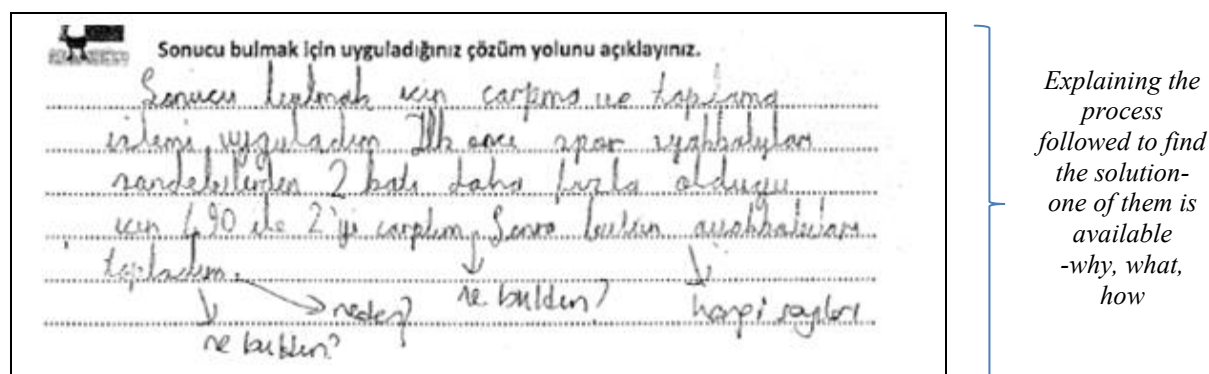 Sonucu bulmak için uyguladığınız çözüm yolunu açıklayınız.
Sonucu bulmak için çarpma ve toplama
işlemi uyguladım İlk önce spor ayakkabıları
sandeletlerden 2 katı daha fazla olduğu
için 490 ile 2'yi çarptım. Sonra bütün ayakkabıları
topladım.
ne buldun?
neden?
ne buldun?
hangi sayıları
Explaining the
process
followed to find
the solution-
one of them is
available
-why, what,
how